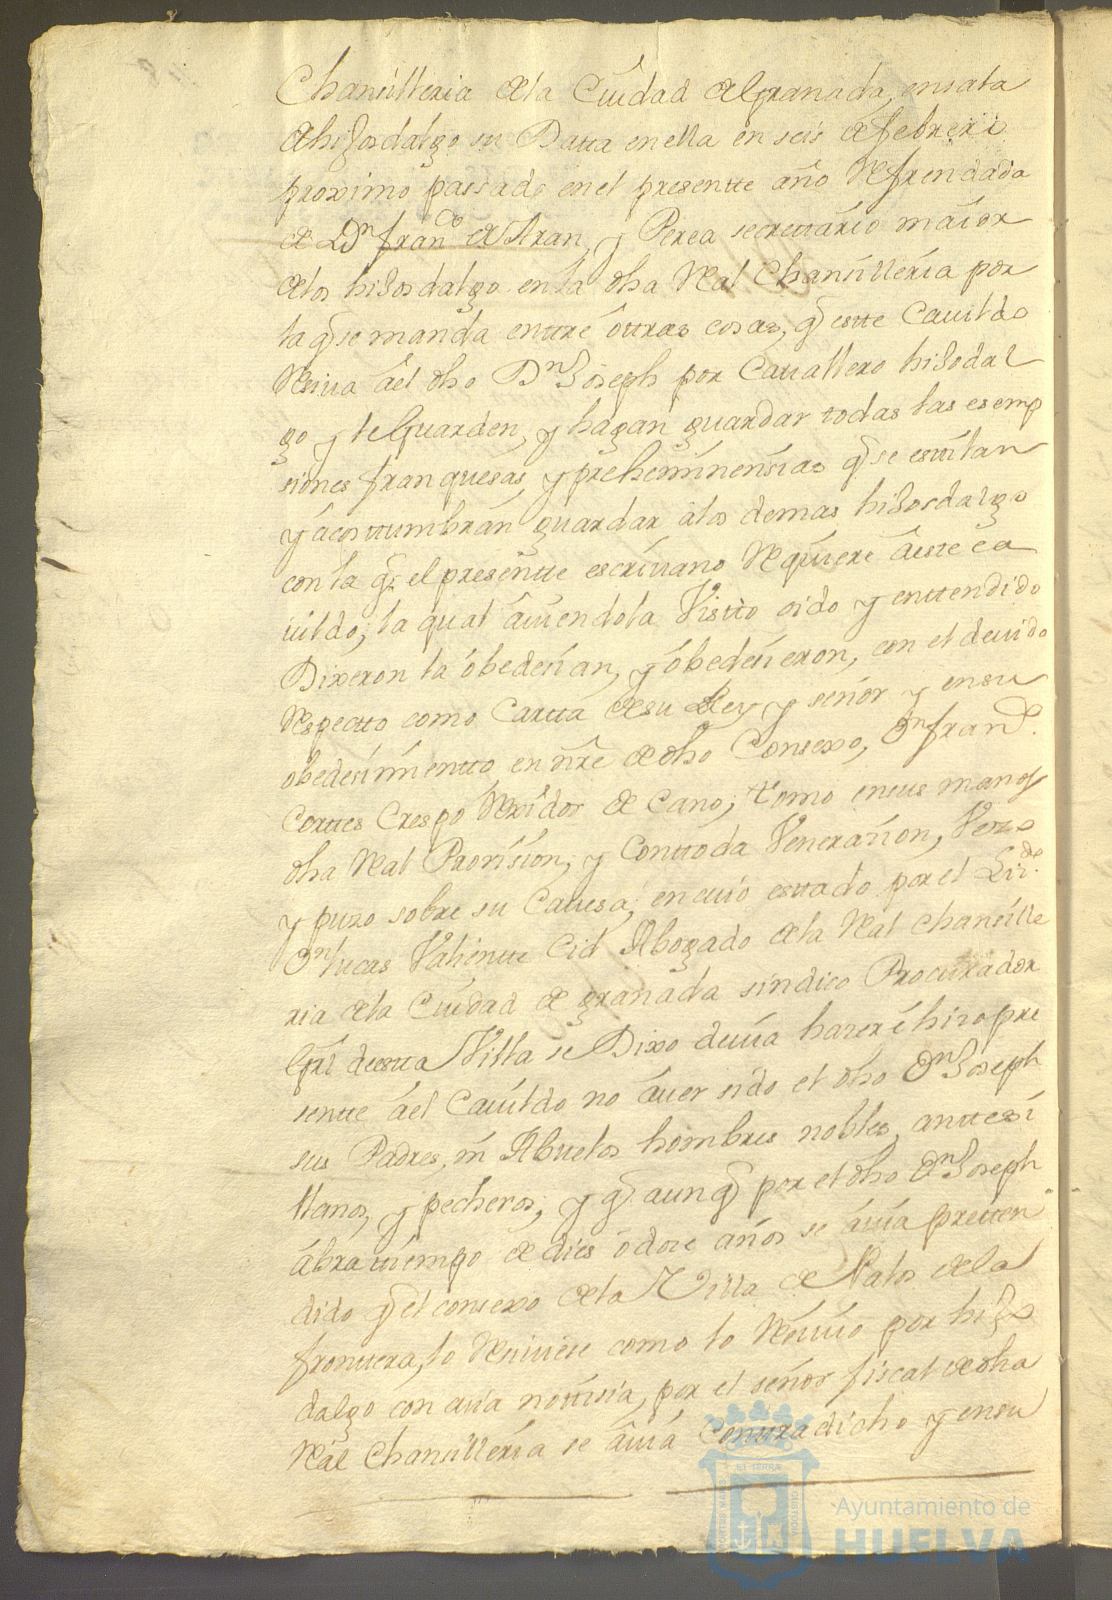 Chansilleria de la Ciudad de Granada, en sala
de hijosdalgo su Datta en ella en seis de febrero
proximo passado en el presentte año Refrendada
de Dn. franco. de Aran, y Perea secrettario maior
de los hijosdalgo en la dha Real Chansilleria por
la q se manda enttre ôttras cosas, q estte Cavildo
Resiva âel dho Dn. Joseph por Cavallero hijodal
go y le Guarden, y hagan guardar todas las esemp
siones franquesas, y preheminensias q se estilan
y acosttumbran guardar âlos demas hijosdalgo
con la q el presentte escrivano Requiere âeste ca
vildo; la qual âviendola Vistto oido y enttendido
Dixeron la ôbedesian, y ôbedesieron, con el devido
Respectto como Cartta de su Rey y señor y en su
obedesimientto en nre de dho Consexo, Dn. franco.
Corttes Crespo Rexidor de Cano; tomo en sus manos
dha Real Provision, y Con ttoda Venerasion, Vezo
y puzo sobre su Cavesa; en cuio esttado por el Lizdo.
Dn. lucas Valientte Cid Abogado de la Real Chansille
ria de la Ciudad de Granada sindico Procurador
Gral deestta Villa se Dixo devia hazer ê hizo pre
sentte âel Cavildo no âver sido el dho Dn. Joseph
sus Padres, ni Abuelos hombres nobles, anttes si
llanos, y pecheros, y q aunq por el dho Dn. Joseph
âbra tiempo de dies ô dose años se âvia pretten
dido q el consexo de la Villa de Palos de la
fronttera, lo Resiviese como lo Resivio por hijo
dalgo con cuia notisia, por el señor fiscal de dha
Real Chansilleria se âvia Conttradicho y en su
Ayuntamiento de
HUELVA